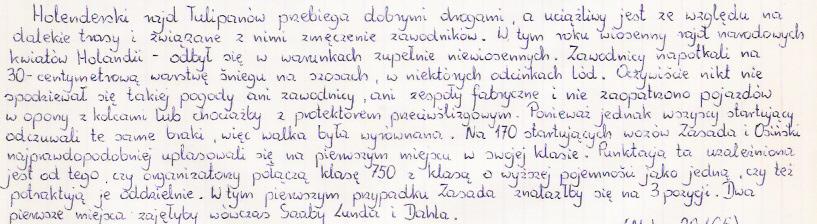 Holenderski rajd Tulipanów przebiega dobrymi drogami, a uciążliwy jest ze względu na
dalekie trasy i związane z nimi zmęczenie zawodników. W tym roku wiosenny rajd narodowych
kwiatów Holandii - odbył się w warunkach zupełnie niewiosennych. Zawodnicy napotkali na
30-centymetrową warstwę śniegu na szosach, w niektórych odcinkach lód. Oczywiście nikt nie
spodziewał się takiej pogody ani zawodnicy, ani zespoły fabryczne i nie zaopatrzono pojazdów
w opony z kolcami lub chociażby z protektorem przeciwślizgowym. Ponieważ jednak wszyscy startujący
odczuwali te same braki, więc walka była wyrównana. Na 170 startujących wozów Zasada i Osiński
najprawdopodobniej uplasowali się na pierwszym miejscu w swojej klasie. Punktacja ta uzależniona
jest od tego, czy organizatorzy połączą klasę 750 z klasą o wyższej pojemności jako jedną, czy też
potraktują je oddzielnie. W tym pierwszym przypadku Zasada znalazłby się na 3 pozycji. Dwa
pierwsze miejsca zajęłyby wówczas Saaby Lunda i Dahla.